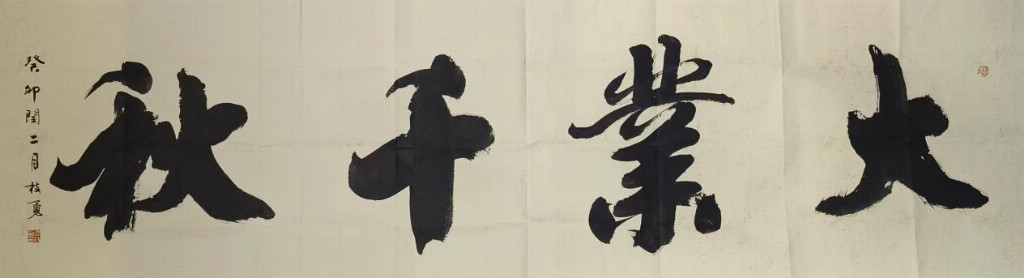 大業千秋
癸卯閏二月枝勇